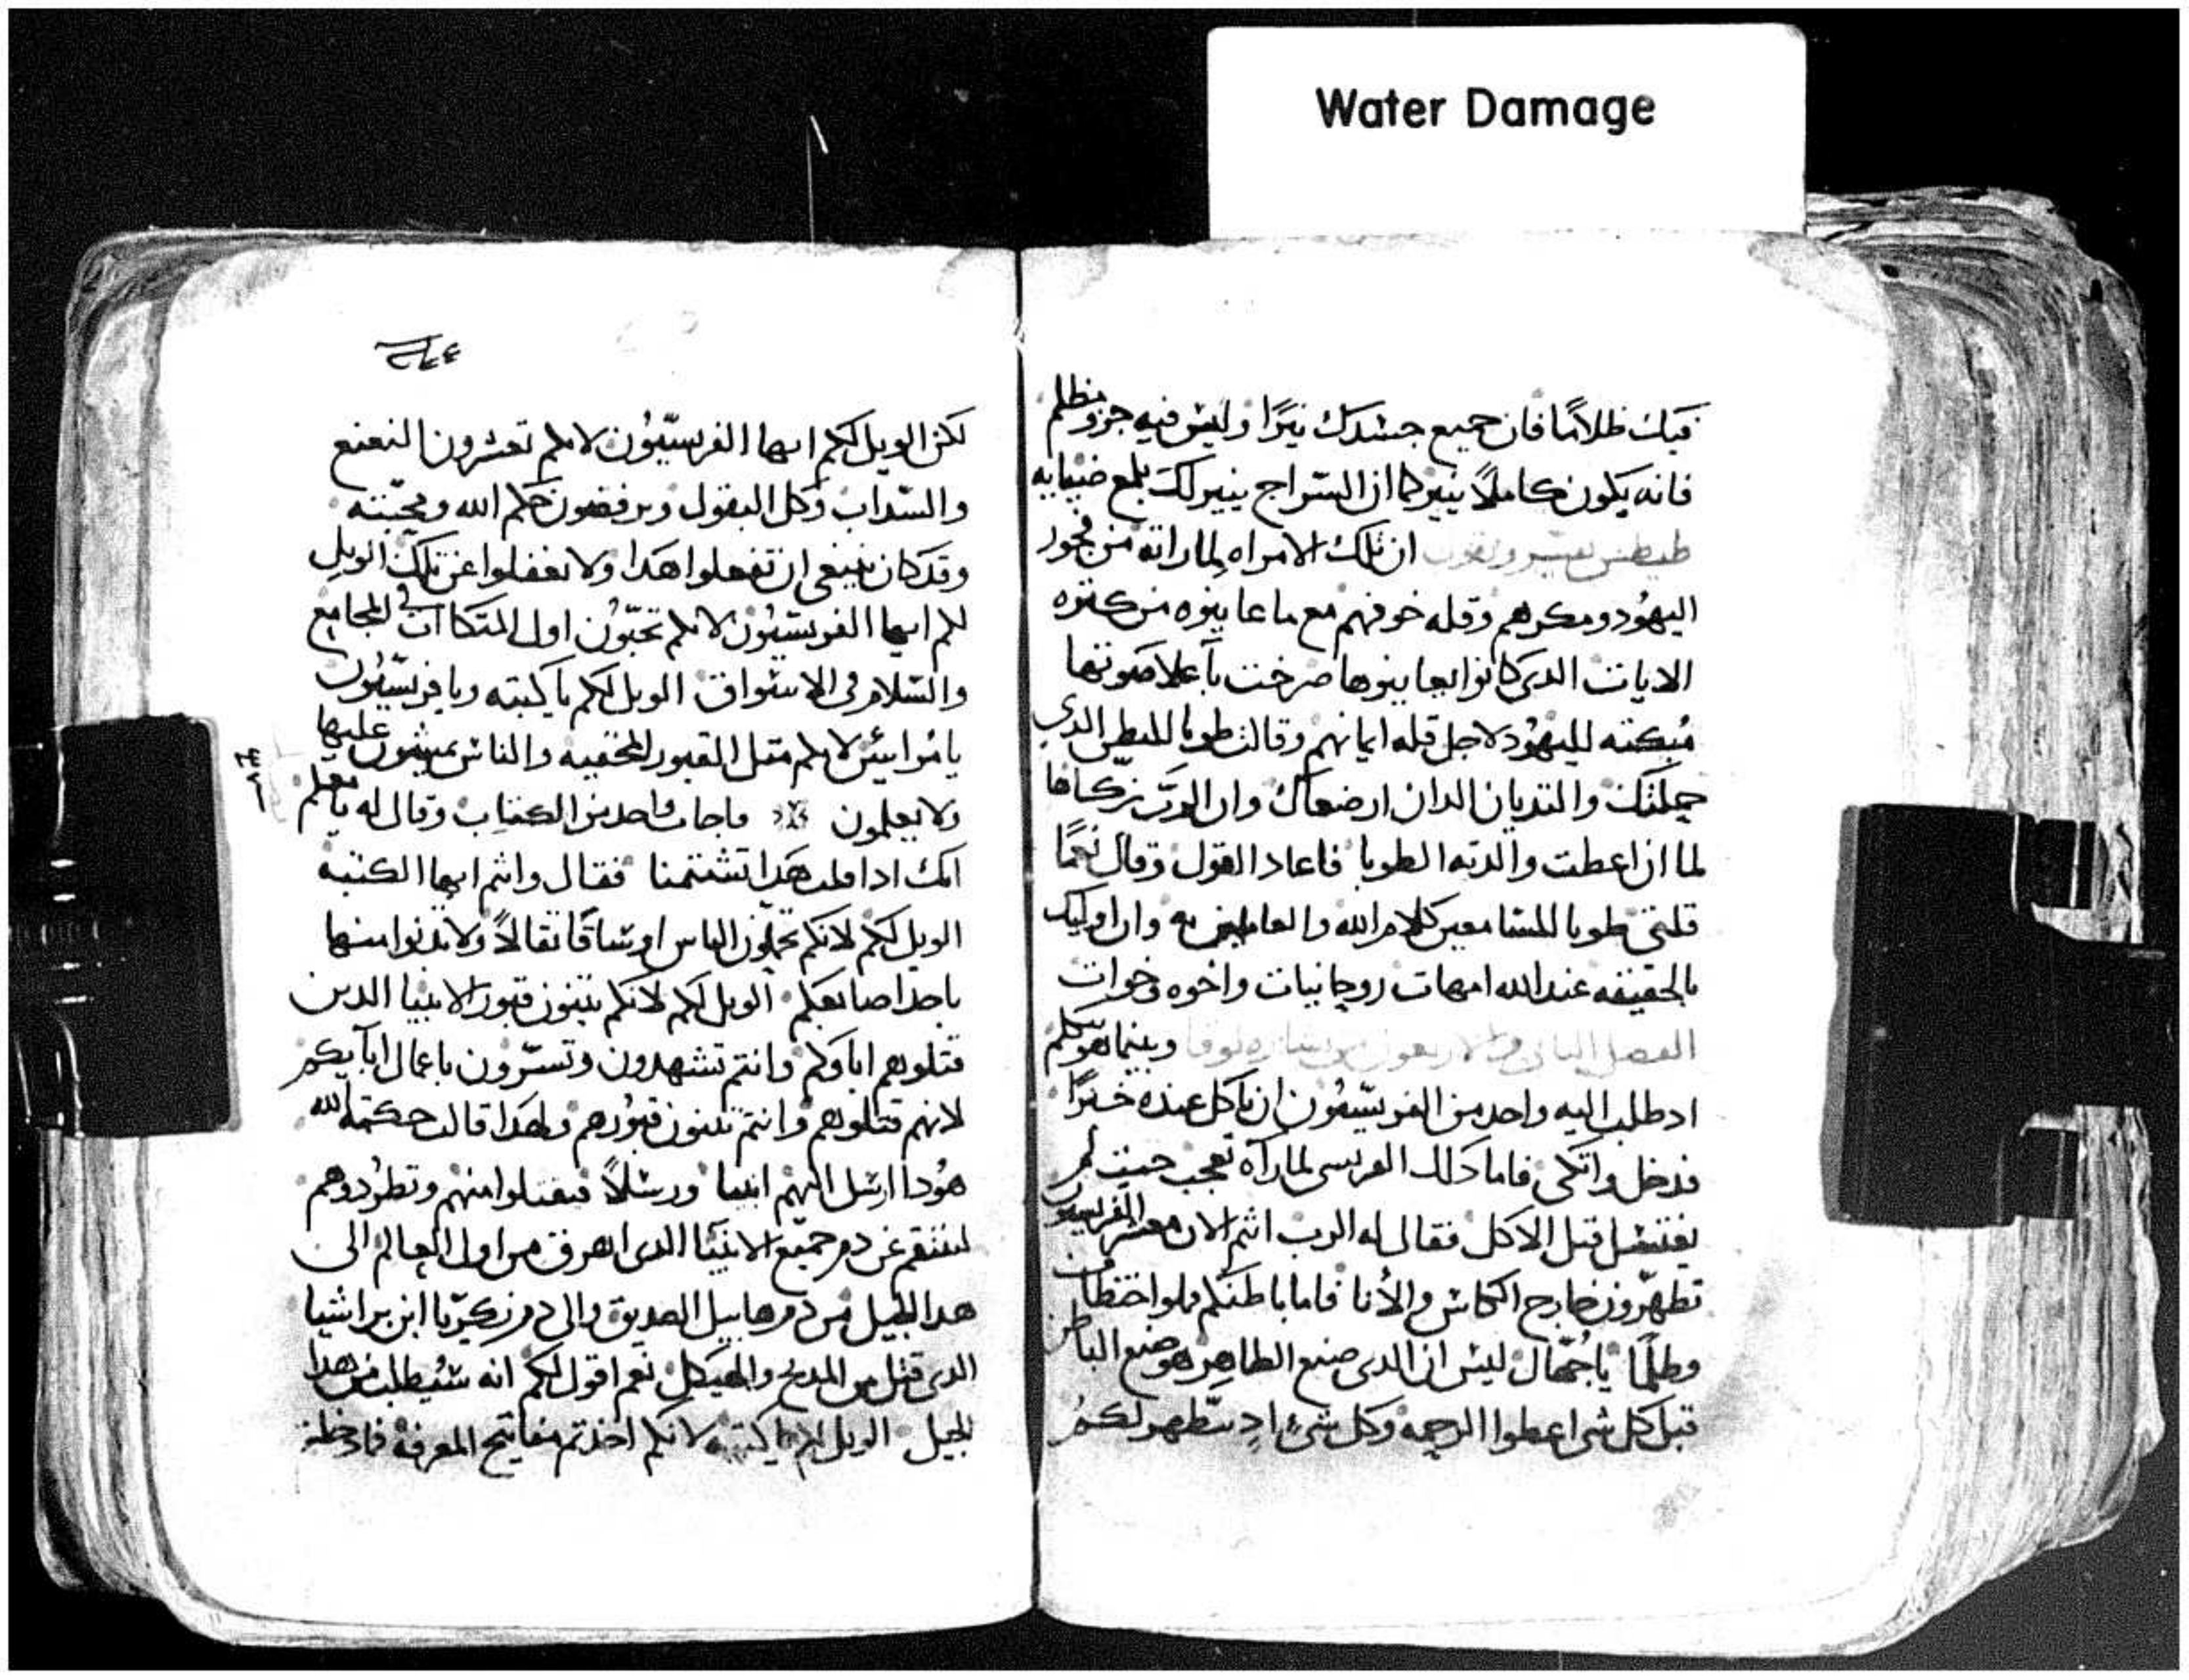 Water Damage
فيك ظلامًا فان جميع جسدك نيرًا وليس فيه جزو مظلم
فانه يكون كاملاً ينير كما ان السراج ينير لك بلمع ضيايه
طيطس يفسر ويقول ان تلك الامراه لما راته من فجور
اليهود ومكرهم وقله خوفهم مع ما عاينوه من كتره
الايات الدى كانوا يعاينوها صرخت باعلا صوتها
مبكته لليهود لاجل قله ايمانهم وقالت طوبا للبطن الدي
حملتك والتديان الدان ارضعاك وان الرب زكاها
لما ان اعطت والدته الطوبا فاعاد القول وقال نعمًا
قلتى طوبا للسامعين كلام الله والعاملين به وان اوليك
بالحقيقه عند الله امهات روحانيات واخوه وخوات
الفصل التانى والاربعون من بشاره لوقا وبينما هو يتكلم
اد طلب اليه واحد من الفريسيون ان ياكل عنده خبزًا
فدخل واتكى فاما دلك الفريسى لما راه تعجب حيت لم
يغتسل قبل الاكل فقال له الرب انتم الان معشر الفريسيون
تطهرون خارج الكاس والأنا فاما باطنكم مملوا اختطافا
وظلمًا ياجهال ليس ان الدى صنع الظاهر هو صنع الباطن
قبل كل شى اعطوا الرحمه وكل شىء اد يتطهر لكم
لكن الويل لكم ايها الفريسيون لانكم تعشرون النعنع
والسداب وكل البقول وترفضون حكم الله ومحبته
وقد كان ينبغى ان تفعلوا هدا ولا تغفلوا عن تلك الويل
لكم ايها الفريسيون لانكم تحبون اول المتكاات في المجامع
والسلام فى الاسواق الويل لكم ياكتبه ويا فريسيون
يا مرايين لانكم متل القبور المخفيه والناس يمشون عليها
ولا يعلمون فاجاب واحد من الكتاب وقال له يا معلم
انك ادا قلت هدا تشتمنا فقال وانتم ايها الكتبه
الويل لكم لانكم تحملون الناس اوساقًا تقالاً ولا تدنوا منها
باحد اصابعكم الويل لكم لانكم تبنون قبور الانبيا الدين
قتلوهم اباوكم وانتم تشهدون وتسرون باعمال ابايكم
لانهم قتلوهم وانتم تبنون قبورهم ولهدا قالت حكمة الله
هودا ارسل اليهم انبيا ورسلاً فيقتلوا منهم وتطردوهم
لينتقم عن دم جميع الانبيا الدى اهرق من اول العالم الى
هدا الجيل من دم هابيل الصديق والى دم زكريا ابن براشيا
الدى قتل بين المدبح والهيكل نعم اقول لكم انه سيطلب من هدا
الجيل الويل لكم يا كتبه لانكم اخدتم مفاتيح المعرفه فادخلتم